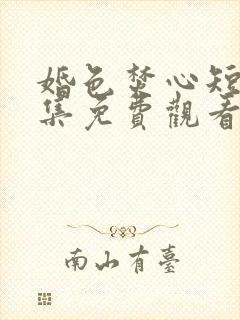 婚色焚心短
集免費觀看
南山有臺